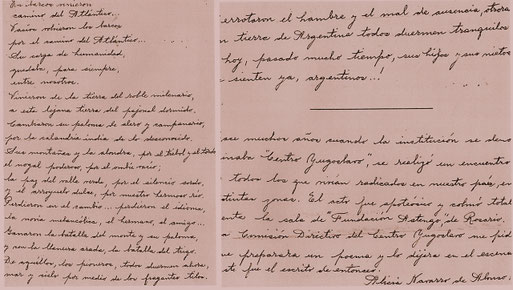 En barcos vinieron
camino del Atlántico...
Vacíos volvieron los barcos
por el camino del Atlántico...
Su carga de humanidad,
quedaba, para siempre,
entre nosotros.
Vinieron de la tierra del roble milenario,
a esta lejana tierra del pajonal dormido.
Cambiaron su paloma de alero y campanario,
por la calandria india de lo desconocido.
Sus montañas y la alondra, por el trébol y el cardo
el nogal poderoso, por el ombú vacío;
la paz del valle verde, por el silencio sordo,
y el arroyuelo dulce, por nuestro hermoso río.
Perdieron en el cambio... perdieron el idioma,
la novia melancólica, el hermano, el amigo...
Ganaron la batalla del monte y su paloma,
y en la llanura arada, la batalla del trigo.
De aquéllos, los pioneros, todos duermen ahora,
mar y cielo por medio de los fragantes tilos.
errotaron el hambre y el mal de ausencia, ahora
tierra de Argentina todos duermen tranquilos
hoy, pasado mucho tiempo, sus hijos y sus nietos
sienten ya, argentinos...!
ace muchos años cuando la institución se deno
inaba "Centro Yugoslavo", se realizó un encuentro
todos los que vivían radicados en nuestro país, en
stintas zonas. El acto fue apoteósico y colmó total
ente la sala de "Fundación Astengo", de Rosario.
a Comisión Directiva del Centro Yugoslavo me pid
que preparara un poema y lo dijera en el escena
fue el escrito de entonces.
Alicia Navarro de Alonso.